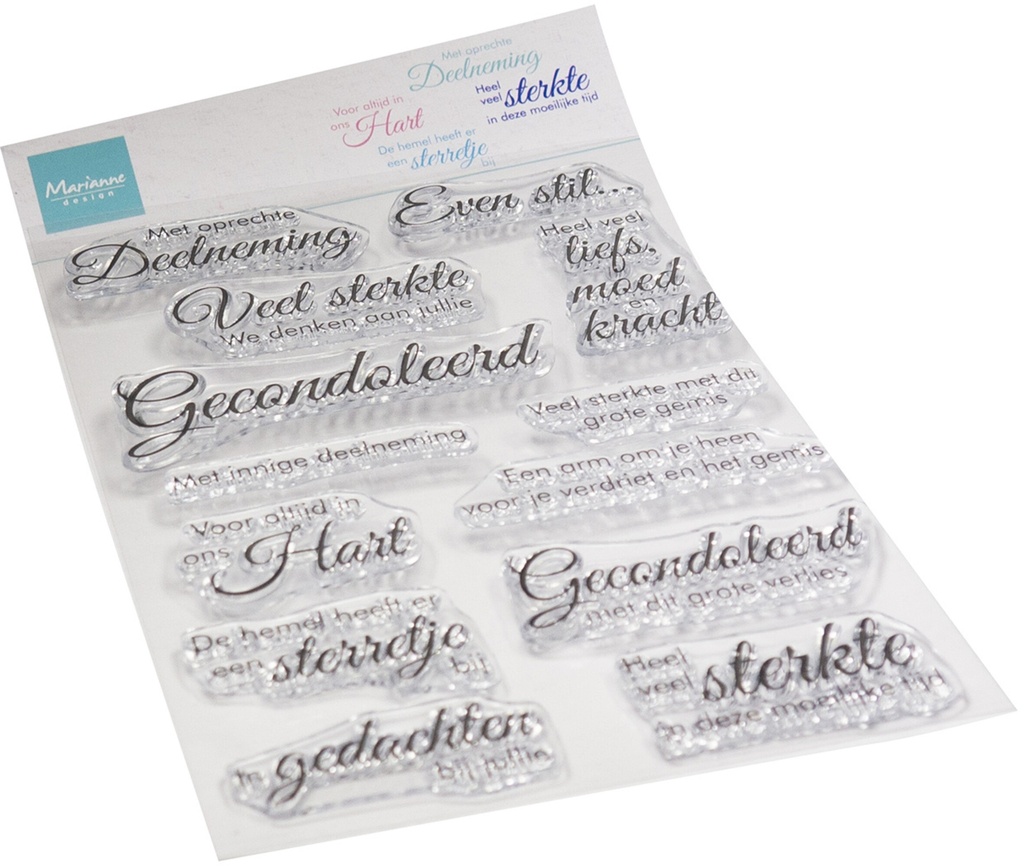 Met oprechte
Deelneming
Heel
veel sterkte
in deze moeilijke tijd
Voor altijd in
ons Hart
De hemel heeft er
een sterretje bij
Marianne
design
Met oprechte
Deelneming
Even stil...
Heel veel
liefs,
moed
en
kracht
Veel sterkte
We denken aan jullie
Gecondoleerd
Veel sterkte met dit
grote gemis
Met innige deelneming
Een arm om je heen
voor je verdriet en het gemis
Voor altijd in
ons Hart
Gecondoleerd
met dit grote verlies
De hemel heeft er
een sterretje bij
Heel
veel sterkte
in deze moeilijke tijd
In gedachten
bij jullie